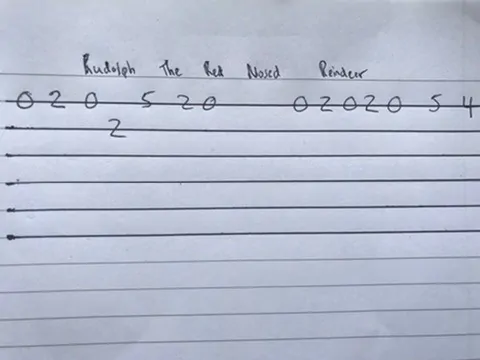 Rudolph The Red Nosed Reindeer
0 2 0 5 2 0 0 2 0 2 0 5 4
2